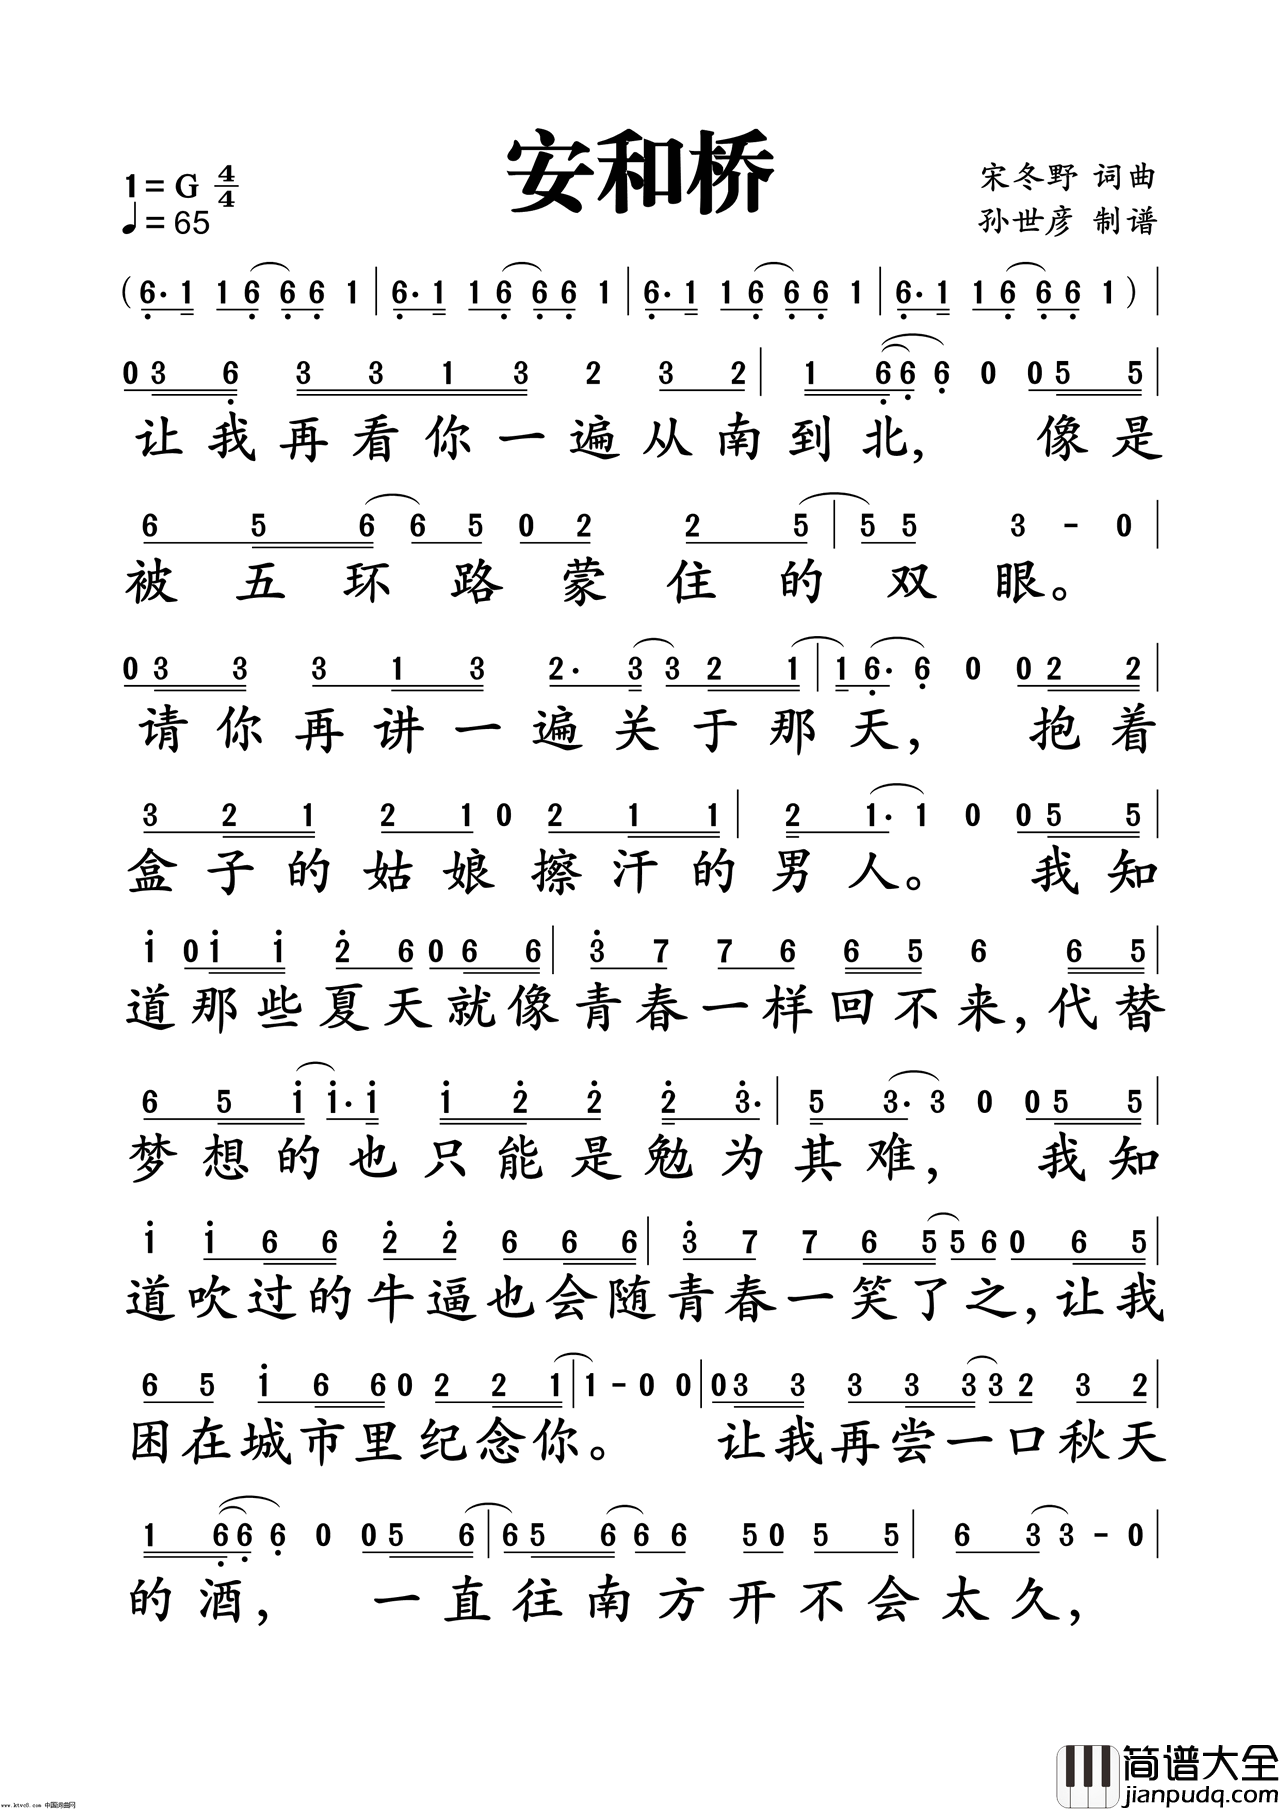 安和桥
1=G 4/4
♩=65
宋冬野 词曲
孙世彦 制谱
(6·1 16 66 1|6·1 16 66 1|6·1 16 66 1|6·1 16 66 1)|
03 6 3 3 1 3 2 3 2|1 6 6 6 0 05 5|
让我再看你一遍从南到北,像是
6 5 6 6 5 0 2 2 5|5 5 3 - 0|
被五环路蒙住的双眼。
03 3 3 1 3 2· 3 3 2 1|1 6· 6 0 02 2|
请你再讲一遍关于那天,抱着
3 2 1 2 1 0 2 1 1|2 1· 1 0 05 5|
盒子的姑娘擦汗的男人。我知
1 01 1 2 6 06 6|3 7 7 6 6 5 6 6 5|
道那些夏天就像青春一样回不来,代替
6 5 1 1·1 1 2 2 2 3·|5 3· 3 0 05 5|
梦想的也只能是勉为其难,我知
1 1 6 6 2 2 6 6 6|3 7 7 6 5 5 6 0 6 5|
道吹过的牛逼也会随青春一笑了之,让我
6 5 1 6 6 0 2 2 1|1 - 0 0|03 3 3 3 3 3 2 3 2|
困在城市里纪念你。让我再尝一口秋天
1 6 6 6 0 05 6|6 5 6 6 6 5 0 5 5|6 3 3 - 0|
的酒,一直往南方开不会太久,
简谱大全
jianpudq.com
www.ktvc8.com 中国词曲网